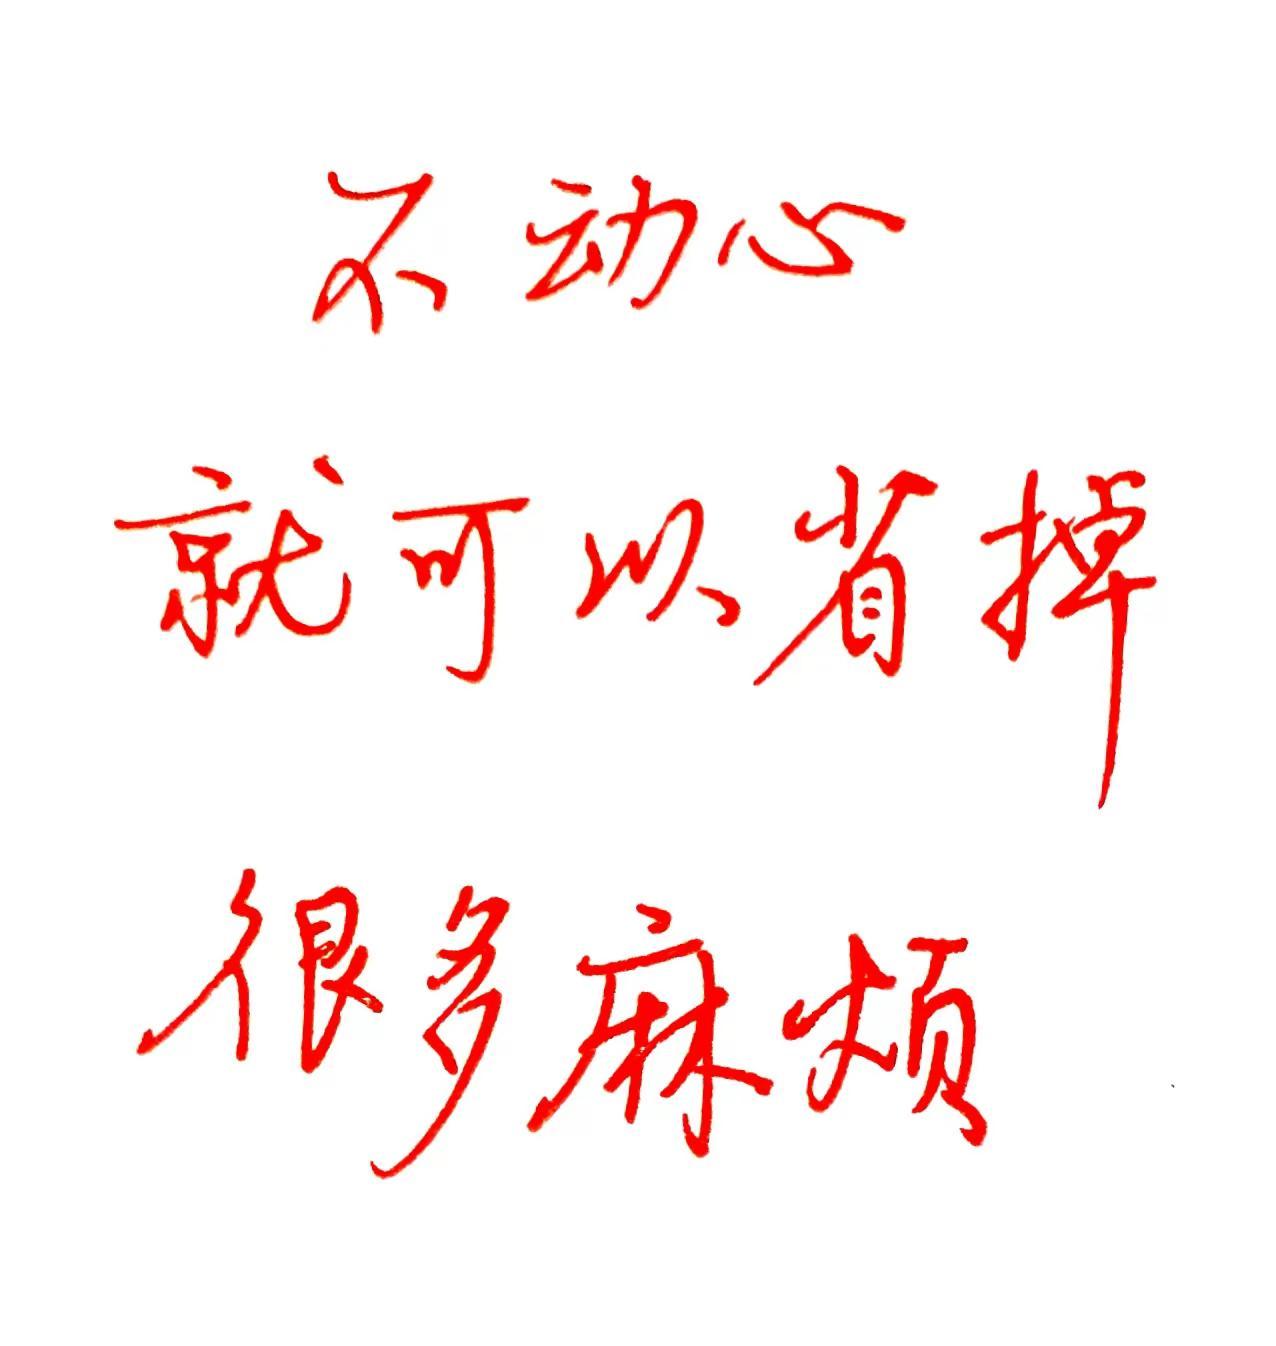 不动心
就可以省掉
很多麻烦